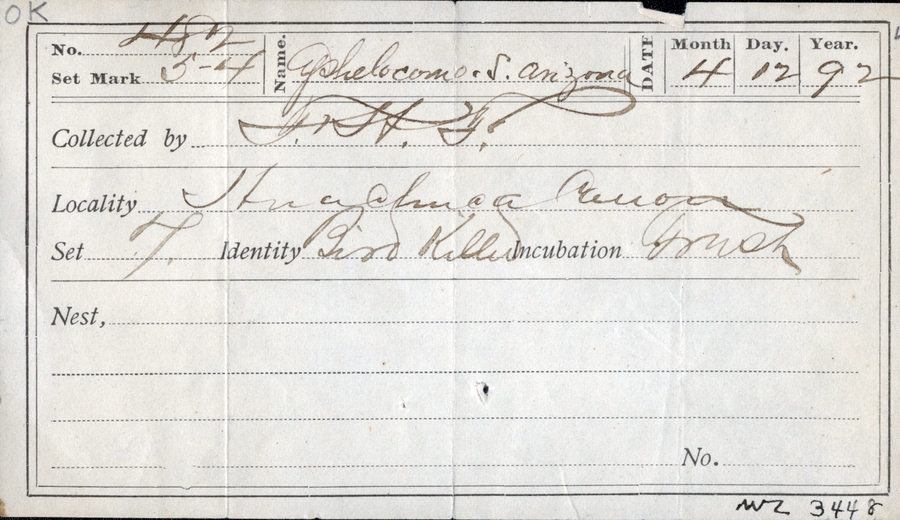 OK
No. 482
Set Mark 5-4
Name. Aphelocoma. S. arizona
DATE
Month Day. Year.
4 12 92
Collected by F. H. F.
Locality Huachuca Canon
Set 4. Identity Bird Killed Incubation Fresh
Nest,
No.
MVZ 3448